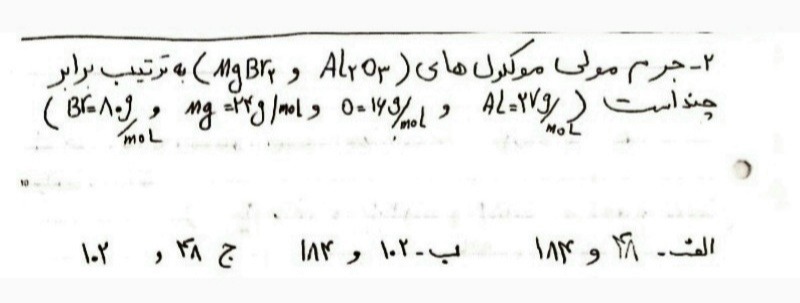 ۲- جرم مولی مولکول های (Al۲O۳ و MgBr۲) به ترتیب برابر
چند است (Al=۲۷g/mol و O=۱۶g/mol و Mg=۲۴g/mol و Br=۸۰g/mol)
۱۰
الف- ۴۸ و ۱۸۴ ب- ۱۰۲ و ۱۸۴ ج ۴۸ و ۱۰۲